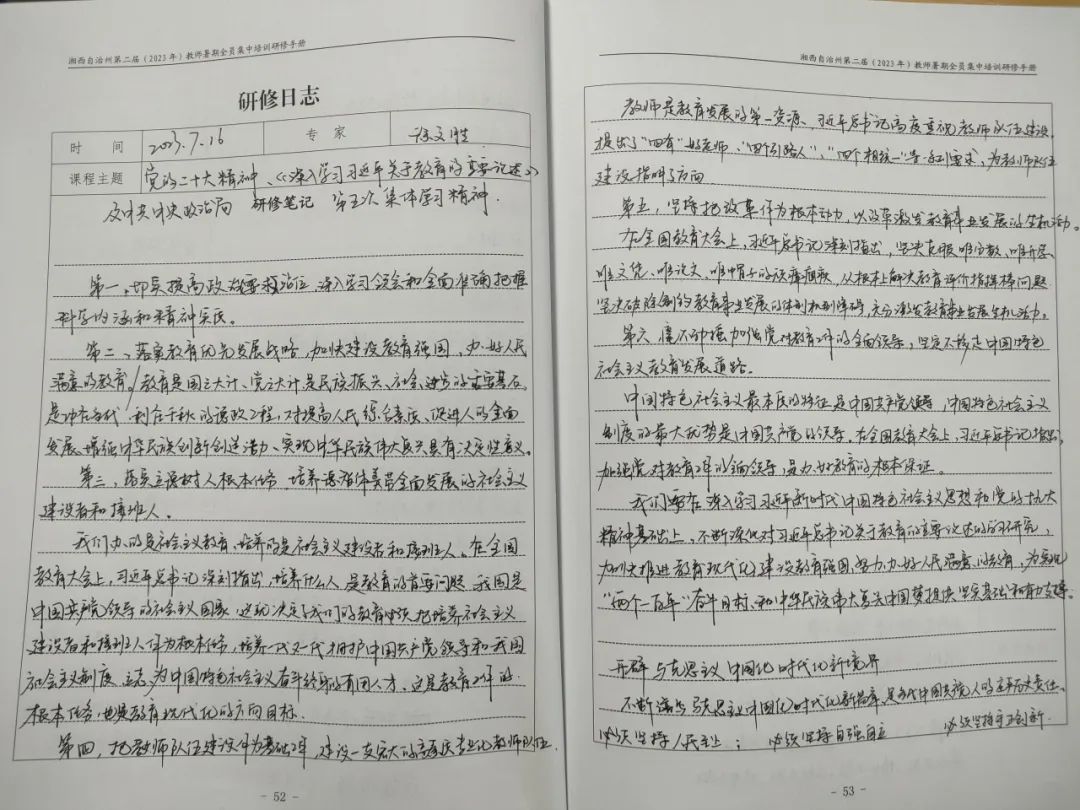 湘西自治州第二届（2023年）教师暑期全员集中培训研修手册
研修日志
时 间 2023.7.16 专 家 徐文胜
课程主题 党的二十大精神、《深入学习习近平关于教育的重要论述》
及中共中央政治局 研修笔记 第五次集体学习精神.
第一、切实提高政治站位，深入学习领会和全面准确把握
科学内涵和精神实质。
第二、落实教育优先发展战略，加快建设教育强国，办好人民
满意的教育。教育是国之大计、党之大计是民族振兴、社会进步的重要基石，
是功在当代、利在千秋的德政工程，对提高人民综合素质、促进人的全面
发展、增强中华民族创新创造活力、实现中华民族伟大复兴具有决定性意义。
第三、落实立德树人根本任务，培养德智体美劳全面发展的社会主义
建设者和接班人。
我们办的是社会主义教育、培养的是社会主义建设者和接班人。在全国
教育大会上，习近平总书记深刻指出，培养什么人，是教育的首要问题。我国是
中国共产党领导的社会主义国家，这就决定了我们的教育必须把培养社会主义
建设者和接班人作为根本任务，培养一代又一代拥护中国共产党领导和我国
社会主义制度、立志为中国特色社会主义奋斗终身的有用人才。这是教育工作的
根本任务，也是教育现代化的方向目标。
第四、把教师队伍建设作为基础工作，建设一支宏大的高素质专业化教师队伍.
- 52 -
湘西自治州第二届（2023年）教师暑期全员集中培训研修手册
教师是教育发展的第一资源、习近平总书记高度重视教师队伍建设，
提出了“四有”好老师、“四个引路人”、“四个相统一”等一系列要求，为教师队伍
建设指明了方向
第五，坚持把改革作为根本动力，以改革激发教育事业发展的生机活力。
在全国教育大会上，习近平总书记深刻指出，坚决克服唯分数、唯升学、
唯文凭、唯论文、唯帽子的顽瘴痼疾，从根本上解决教育评价指挥棒问题
坚决破除制约教育事业发展的体制机制障碍，充分激发教育事业发展生机活力。
第六、毫不动摇加强党对教育工作的全面领导，坚定不移走中国特色
社会主义教育发展道路。
中国特色社会主义最本质的特征是中国共产党领导，中国特色社会主义
制度的最大优势是中国共产党的领导。在全国教育大会上，习近平总书记指出，
加强党对教育工作的全面领导，是办好教育的根本保证。
我们要在深入学习习近平新时代中国特色社会主义思想和党的十九大
精神基础上，不断深化对习近平总书记关于教育的重要论述的学习研究，
加快推进教育现代化，建设教育强国，努力办好人民满意的教育，为实现
“两个一百年”奋斗目标、和中华民族伟大复兴中国梦提供坚实基础和有力支撑。
开辟马克思主义中国化时代化新境界
不断谱写马克思主义中国化时代化新篇章，是当代中国共产党人的庄严历史责任。
必须坚持人民至上； 必须坚持自强自立 必须坚持守正创新.
- 53 -